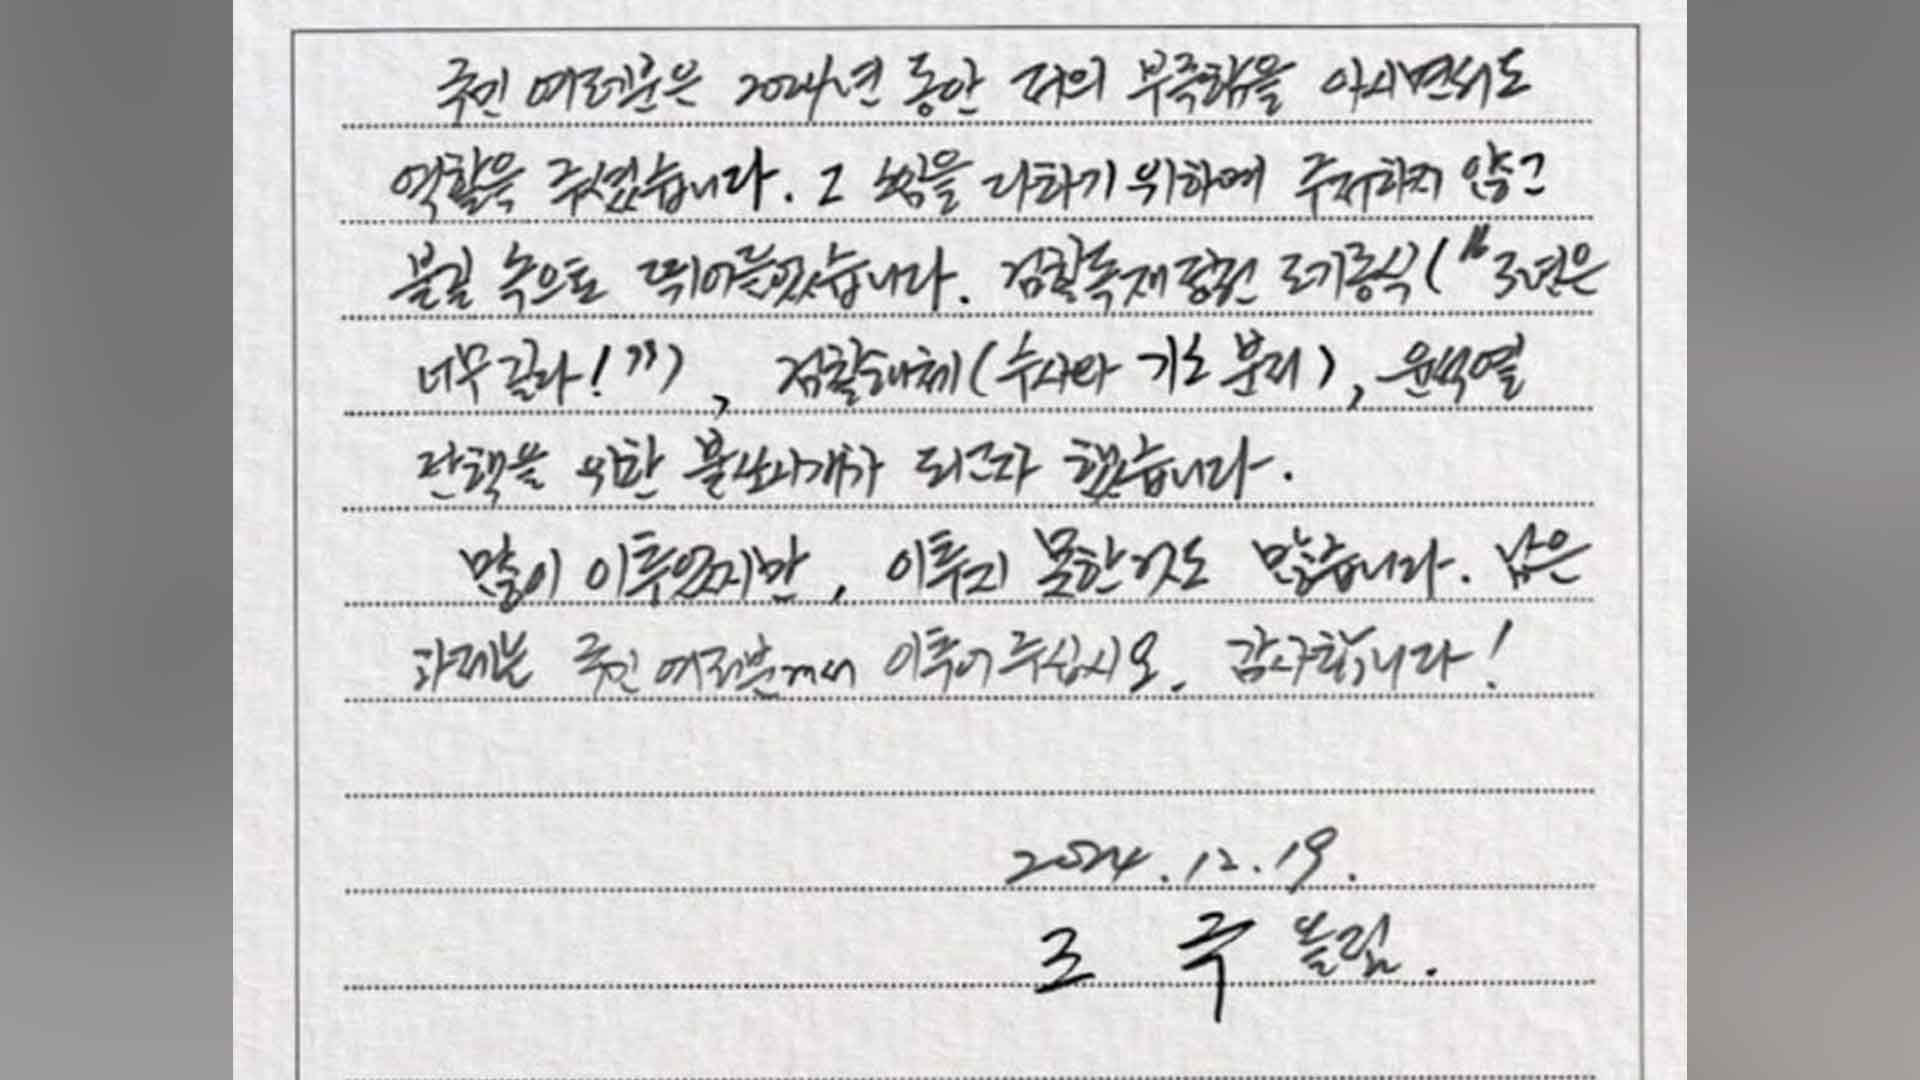 국민 여러분은 2024년 동안 저의 부족함을 아시면서도
역할을 주셨습니다. 그 소임을 다하기 위하여 주저하지 않고
불길 속으로 뛰어들었습니다. 검찰독재정권 조기종식("3년은
너무 길다!"), 검찰해체(수사와 기소 분리), 윤석열
탄핵을 위한 불쏘시개가 되고자 했습니다.
많이 이루었지만, 이루지 못한 것도 많습니다. 남은
과제는 국민 여러분께서 이루어 주십시오. 감사합니다!
2024. 12. 19.
조 국 올림.